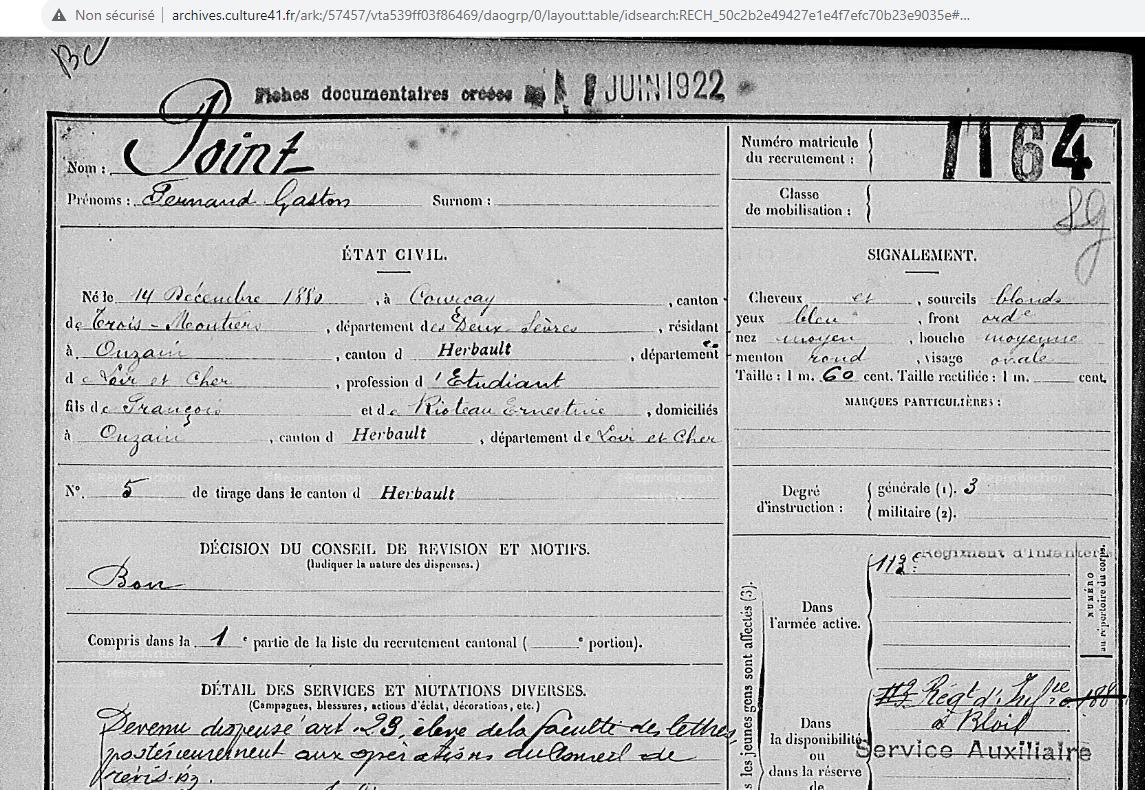 Non sécurisé | archives.culture41.fr/ark:/57457/vta539ff03f86469/daogrp/0/layout:table/idsearch:RECH_50c2b2e49427e1e4f7efc70b23e9035e#...
Fiches documentaires créées JUIN 1922
Nom : Point
Prénoms : Fernand Gaston Surnom :
Numéro matricule du recrutement : 1164
Classe de mobilisation :
ÉTAT CIVIL.
Né le 14 Décembre 1880, à Courçay, canton
de Trois-Moutiers, département des Deux Sèvres, résidant
à Onzain, canton d Herbault, département
d Loir et Cher, profession d'Etudiant
fils de François et de Rioteau Ernestine, domiciliés
à Onzain, canton d Herbault, département de Loir et Cher
SIGNALEMENT.
Cheveux et, sourcils blonds
yeux bleu, front ordre
nez moyen, bouche moyenne
menton rond, visage ovale
Taille : 1 m. 60 cent. Taille rectifiée : 1 m. cent.
MARQUES PARTICULIÈRES :
N°. 5 de tirage dans le canton d Herbault
Degré d'instruction : générale (1). 3
militaire (2).
DÉCISION DU CONSEIL DE REVISION ET MOTIFS.
(Indiquer la nature des dispenses.)
Bon
Compris dans la 1e partie de la liste du recrutement cantonal ( e portion).
DÉTAIL DES SERVICES ET MUTATIONS DIVERSES.
(Campagnes, blessures, actions d'éclat, décorations, etc.)
Devenu dispensé art. 23, élève de la faculté des lettres,
postérieurement aux opérations du Conseil de
révis.on.
les jeunes gens sont affectés (3).
Dans l'armée active.
113e Régiment d'Infanterie
NUMÉRO au répertoire du corps.
Dans la disponibilité ou dans la réserve de
Régt d'Infie
à Blois
Service Auxiliaire